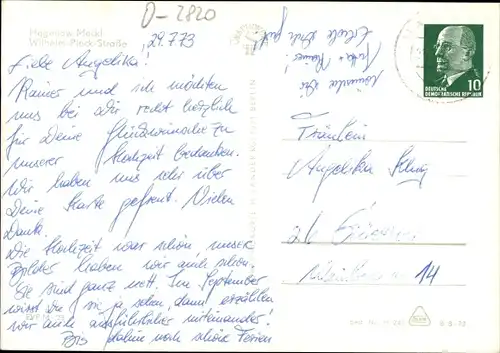 D-2820
Hagenow Meckl
Wilhelm-Pieck-Straße
29.7.73
Liebe Angelika!
Rainer und ich möchten
uns bei Dir recht herzlich
für Deine Glückwünsche zu
unserer Hochzeit bedanken.
Wir haben uns sehr über
Deine Karte gefreut. Vielen
Dank.
Die Hochzeit war schön, unsere
Bilder haben wir auch schon.
Sie sind ganz nett. Im September
wirst Du sie ja sehen, dann erzählen
wir auch ausführlicher miteinander!
Bis dahin noch schöne Ferien
wünschen Dir
+ Rainer!
Erhole Dich gut
DEUTSCHE
DEMOKRATISCHE REPUBLIK
10
Fräulein
Angelika
26
14